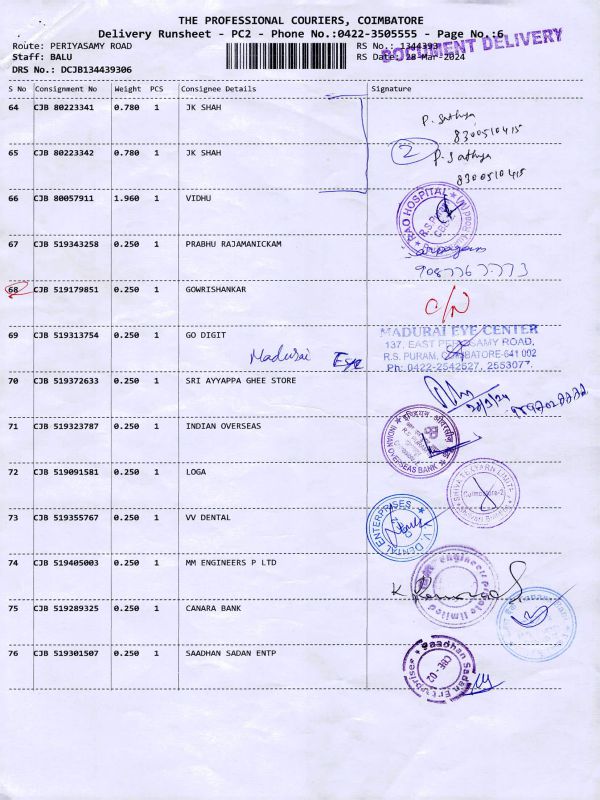 THE PROFESSIONAL COURIERS, COIMBATORE
Delivery Runsheet - PC2 - Phone No.:0422-3505555 - Page No.:6
Route: PERIYASAMY ROAD
Staff: BALU
DRS No.: DCJB134439306
RS No.: 1344393
RS Date: 28-Mar-2024
DOCUMENT DELIVERY
S No Consignment No Weight PCS Consignee Details Signature
64 CJB 80223341 0.780 1 JK SHAH
P. Sathya
8300510415
65 CJB 80223342 0.780 1 JK SHAH
2 P. Sathya
8300510415
66 CJB 80057911 1.960 1 VIDHU
RAO HOSPITAL
67 CJB 519343258 0.250 1 PRABHU RAJAMANICKAM
68 CJB 519179851 0.250 1 GOWRISHANKAR
69 CJB 519313754 0.250 1 GO DIGIT
Madurai Eye
MADURAI EYE CENTER
137, EAST PERIYASAMY ROAD,
R.S. PURAM, COIMBATORE-641 002
Ph: 0422-2542527,
70 CJB 519372633 0.250 1 SRI AYYAPPA GHEE STORE
71 CJB 519323787 0.250 1 INDIAN OVERSEAS
INDIAN OVERSEAS BANK
72 CJB 519091581 0.250 1 LOGA
Coimbatore-2
73 CJB 519355767 0.250 1 VV DENTAL
V DENTAL ENTERPRISES
74 CJB 519405003 0.250 1 MM ENGINEERS P LTD
Engineers Private limited
75 CJB 519289325 0.250 1 CANARA BANK
76 CJB 519301507 0.250 1 SAADHAN SADAN ENTP
Saadhan Sadan Enterprises
CBE-02